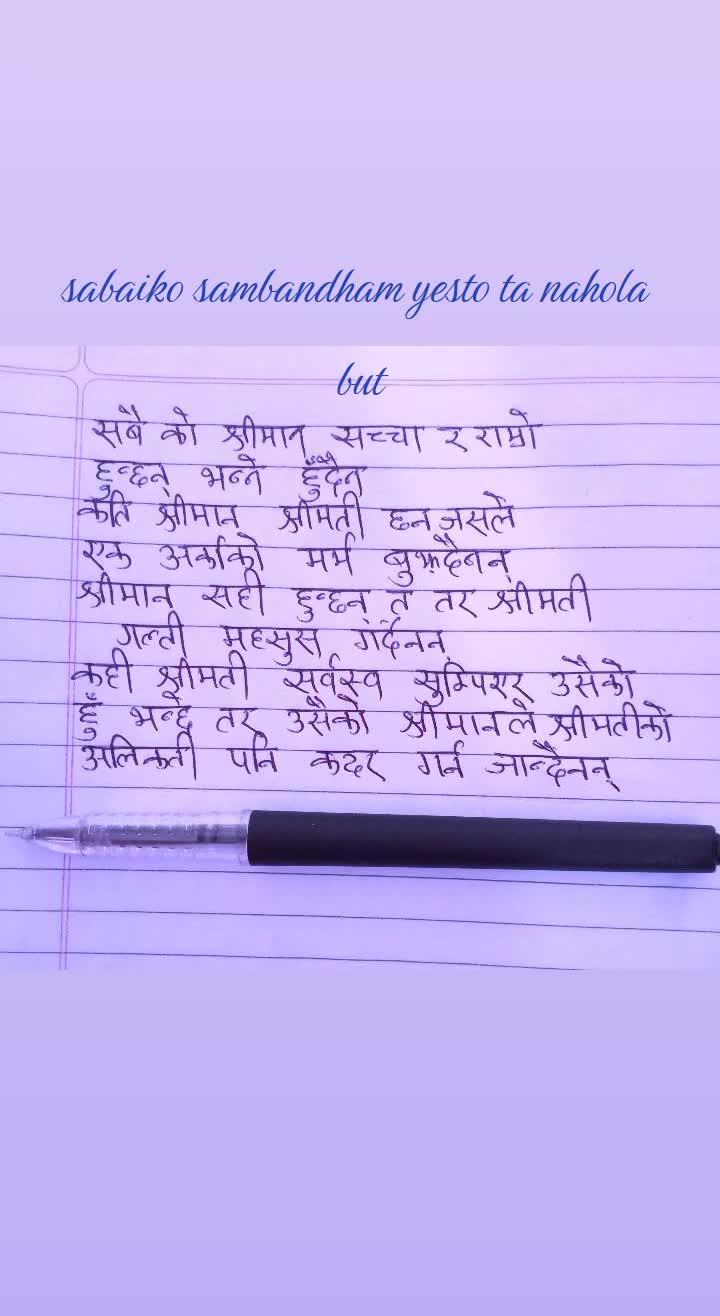 sabaiko sambandham yesto ta nahola
but
सबै को श्रीमान सच्चा र राम्रो
हुन्छन् भन्ने हुँदैन
कति श्रीमान श्रीमती छन जसले
एक अर्काको मर्म बुझ्दैनन्
श्रीमान सही हुन्छन् त तर श्रीमती
गल्ती महसुस गर्दैनन्
कही श्रीमती सर्वस्व सुम्पिएर उसैको
हुँ भन्छे तर उसैको श्रीमानले श्रीमतीको
अलिकती पनि कदर गर्न जान्दैनन्